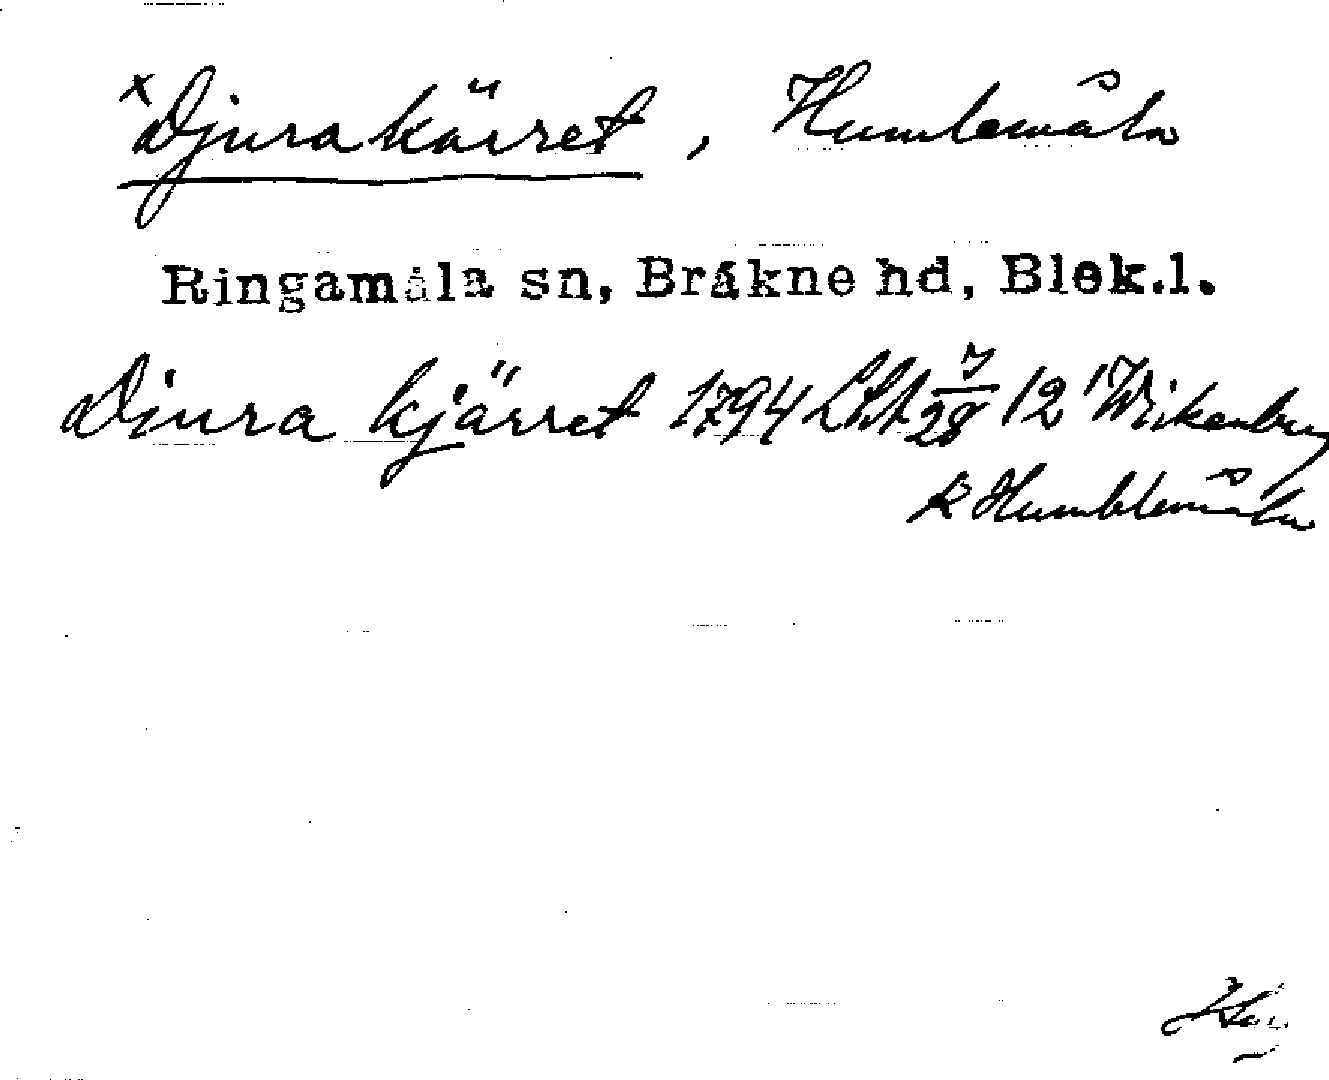 x Djurakärret, Humlemåla
Ringamåla sn, Bräkne hd, Blek.l.
Djura kjärret 1794 LSA 7/28 12 Wikenberg
R Humblemåla